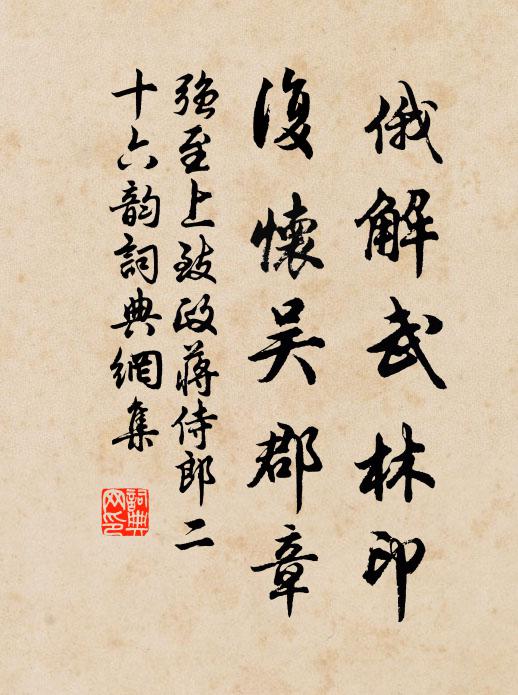 俄解武林印
復懷吴郡章
強至上致政蔣侍郎二
十六韵詞典網集
詞典
网印